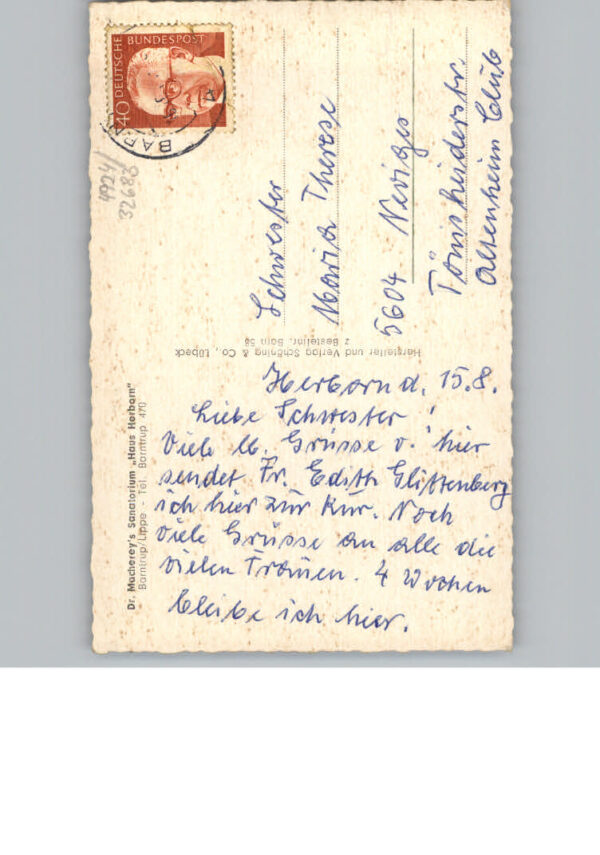 DEUTSCHE BUNDESPOST
40
4924/
32683
Schwester
Maria Therese
5604 Neviges
Tönisheiderstr.
Altenheim Club
Hersteller und Verlag Schöning & Co., Lübeck
z Bestellnr. Barn 58
Dr. Macherey's Sanatorium „Haus Herborn"
Barntrup/Lippe - Tel. Barntrup 470
Herborn d. 15.8.
Liebe Schwester!
Viele lb. Grüsse v. hier
sendet Fr. Edith Glittenberg
ich hier zur Kur. Noch
viele Grüsse an alle die
vielen Frauen. 4 Wochen
bleibe ich hier.